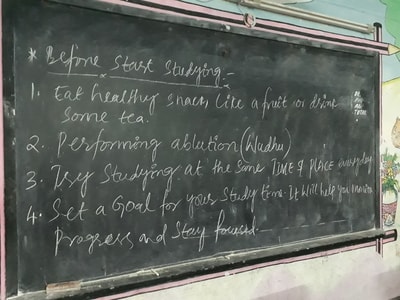 * Before Start Studying :-
1. Eat healthy snack, Like a fruit or drink
some tea.
2. Performing ablution (Wudhu)
3. Try Studying at the Same TIME & PLACE everyday
4. Set a Goal for your Study time. It Will help you
Progress and Stay focused.